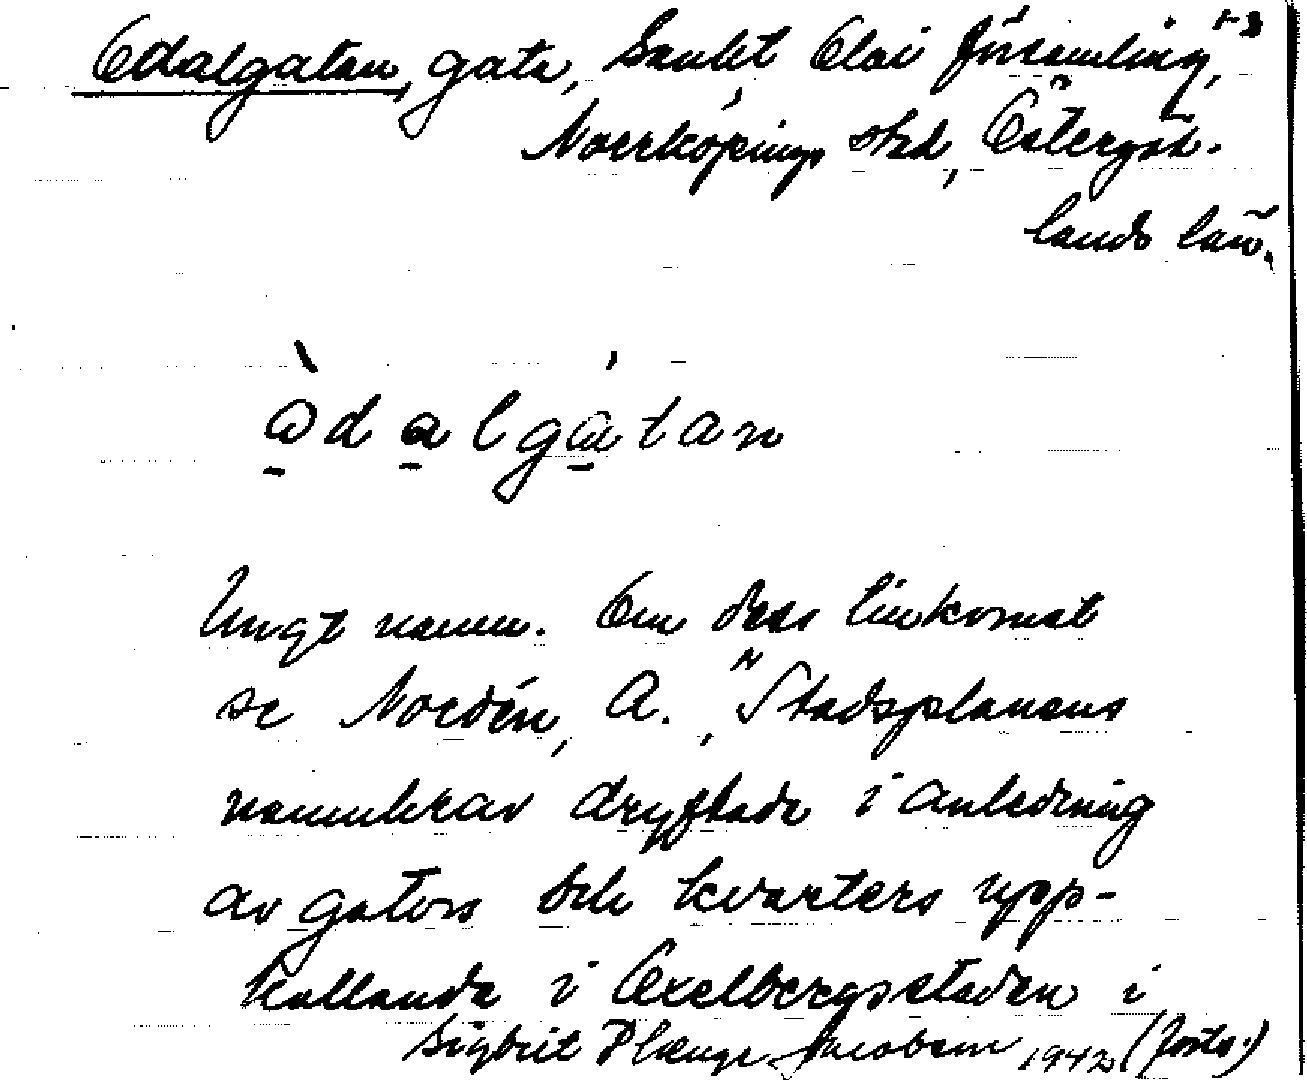 Odalgatan, gata, Sankt Olai församling, 1-3
Norrköpings stad, Östergöt-
lands län.
òdalgátan
Ungt namn. Om dess tillkomst
se Nordén, A., "Stadsplanens
namnkrav dryftade i anledning
av gators och kvarters upp-
kallande i Oxelbergsstaden i
Sigbrit Plænge Jacobson 1942 (forts.)